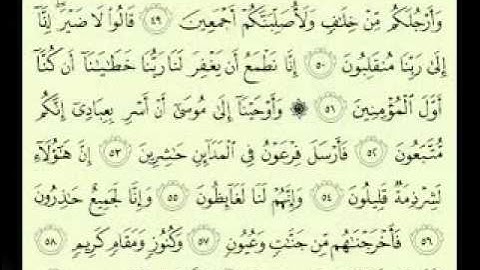 وَأَرْجُلَكُم مِّنْ خِلَٰفٍ وَلَأُصَلِّبَنَّكُمْ أَجْمَعِينَ ٤٩ قَالُوا۟ لَا ضَيْرَ ۖ إِنَّآ
إِلَىٰ رَبِّنَا مُنقَلِبُونَ ٥٠ إِنَّا نَطْمَعُ أَن يَغْفِرَ لَنَا رَبُّنَا خَطَٰيَٰنَآ أَن كُنَّآ
أَوَّلَ ٱلْمُؤْمِنِينَ ٥١ ۞ وَأَوْحَيْنَآ إِلَىٰ مُوسَىٰٓ أَنْ أَسْرِ بِعِبَادِىٓ إِنَّكُم
مُّتَّبَعُونَ ٥٢ فَأَرْسَلَ فِرْعَوْنُ فِى ٱلْمَدَآئِنِ حَٰشِرِينَ ٥٣ إِنَّ هَٰٓؤُلَآءِ
لَشِرْذِمَةٌ قَلِيلُونَ ٥٤ وَإِنَّهُمْ لَنَا لَغَآئِظُونَ ٥٥ وَإِنَّا لَجَمِيعٌ حَٰذِرُونَ
٥٦ فَأَخْرَجْنَٰهُم مِّن جَنَّٰتٍ وَعُيُونٍ ٥٧ وَكُنُوزٍ وَمَقَامٍ كَرِيمٍ ٥٨